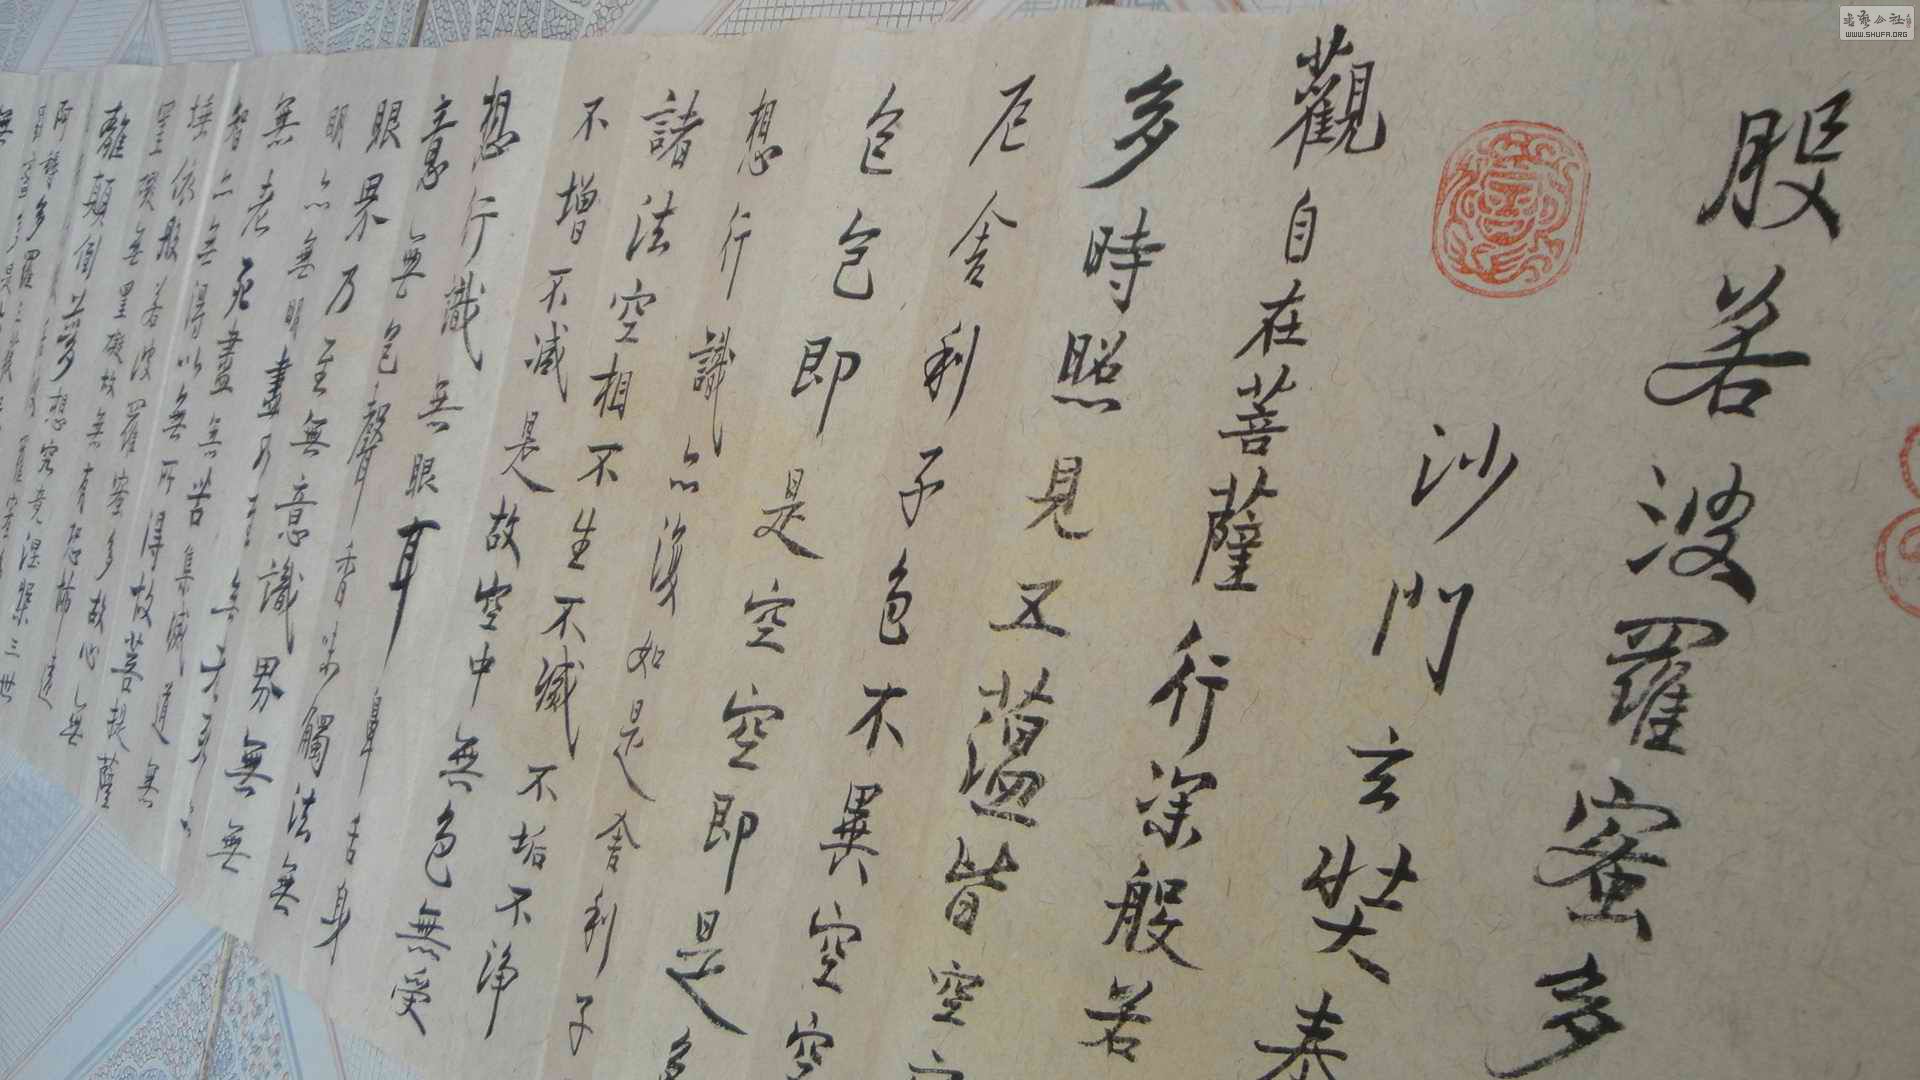 般若波羅蜜多
沙門玄奘奉
觀自在菩薩行深般若
多時照見五蘊皆空
厄舍利子色不異空空
色色即是空空即是
想行識亦復如是舍利子
諸法空相不生不滅不垢不淨
不增不減是故空中無色無受
想行識無眼耳鼻舌身
意無色聲香味觸法無
眼界乃至無意識界無無
明亦無無明盡乃至無
無老死盡無苦集滅道無
智亦無得以無所得故菩提薩
埵依般若波羅蜜多故心無
罣礙無罣礙故無有恐怖遠
離顛倒夢想究竟涅槃三世
WWW.SHUFA.ORG